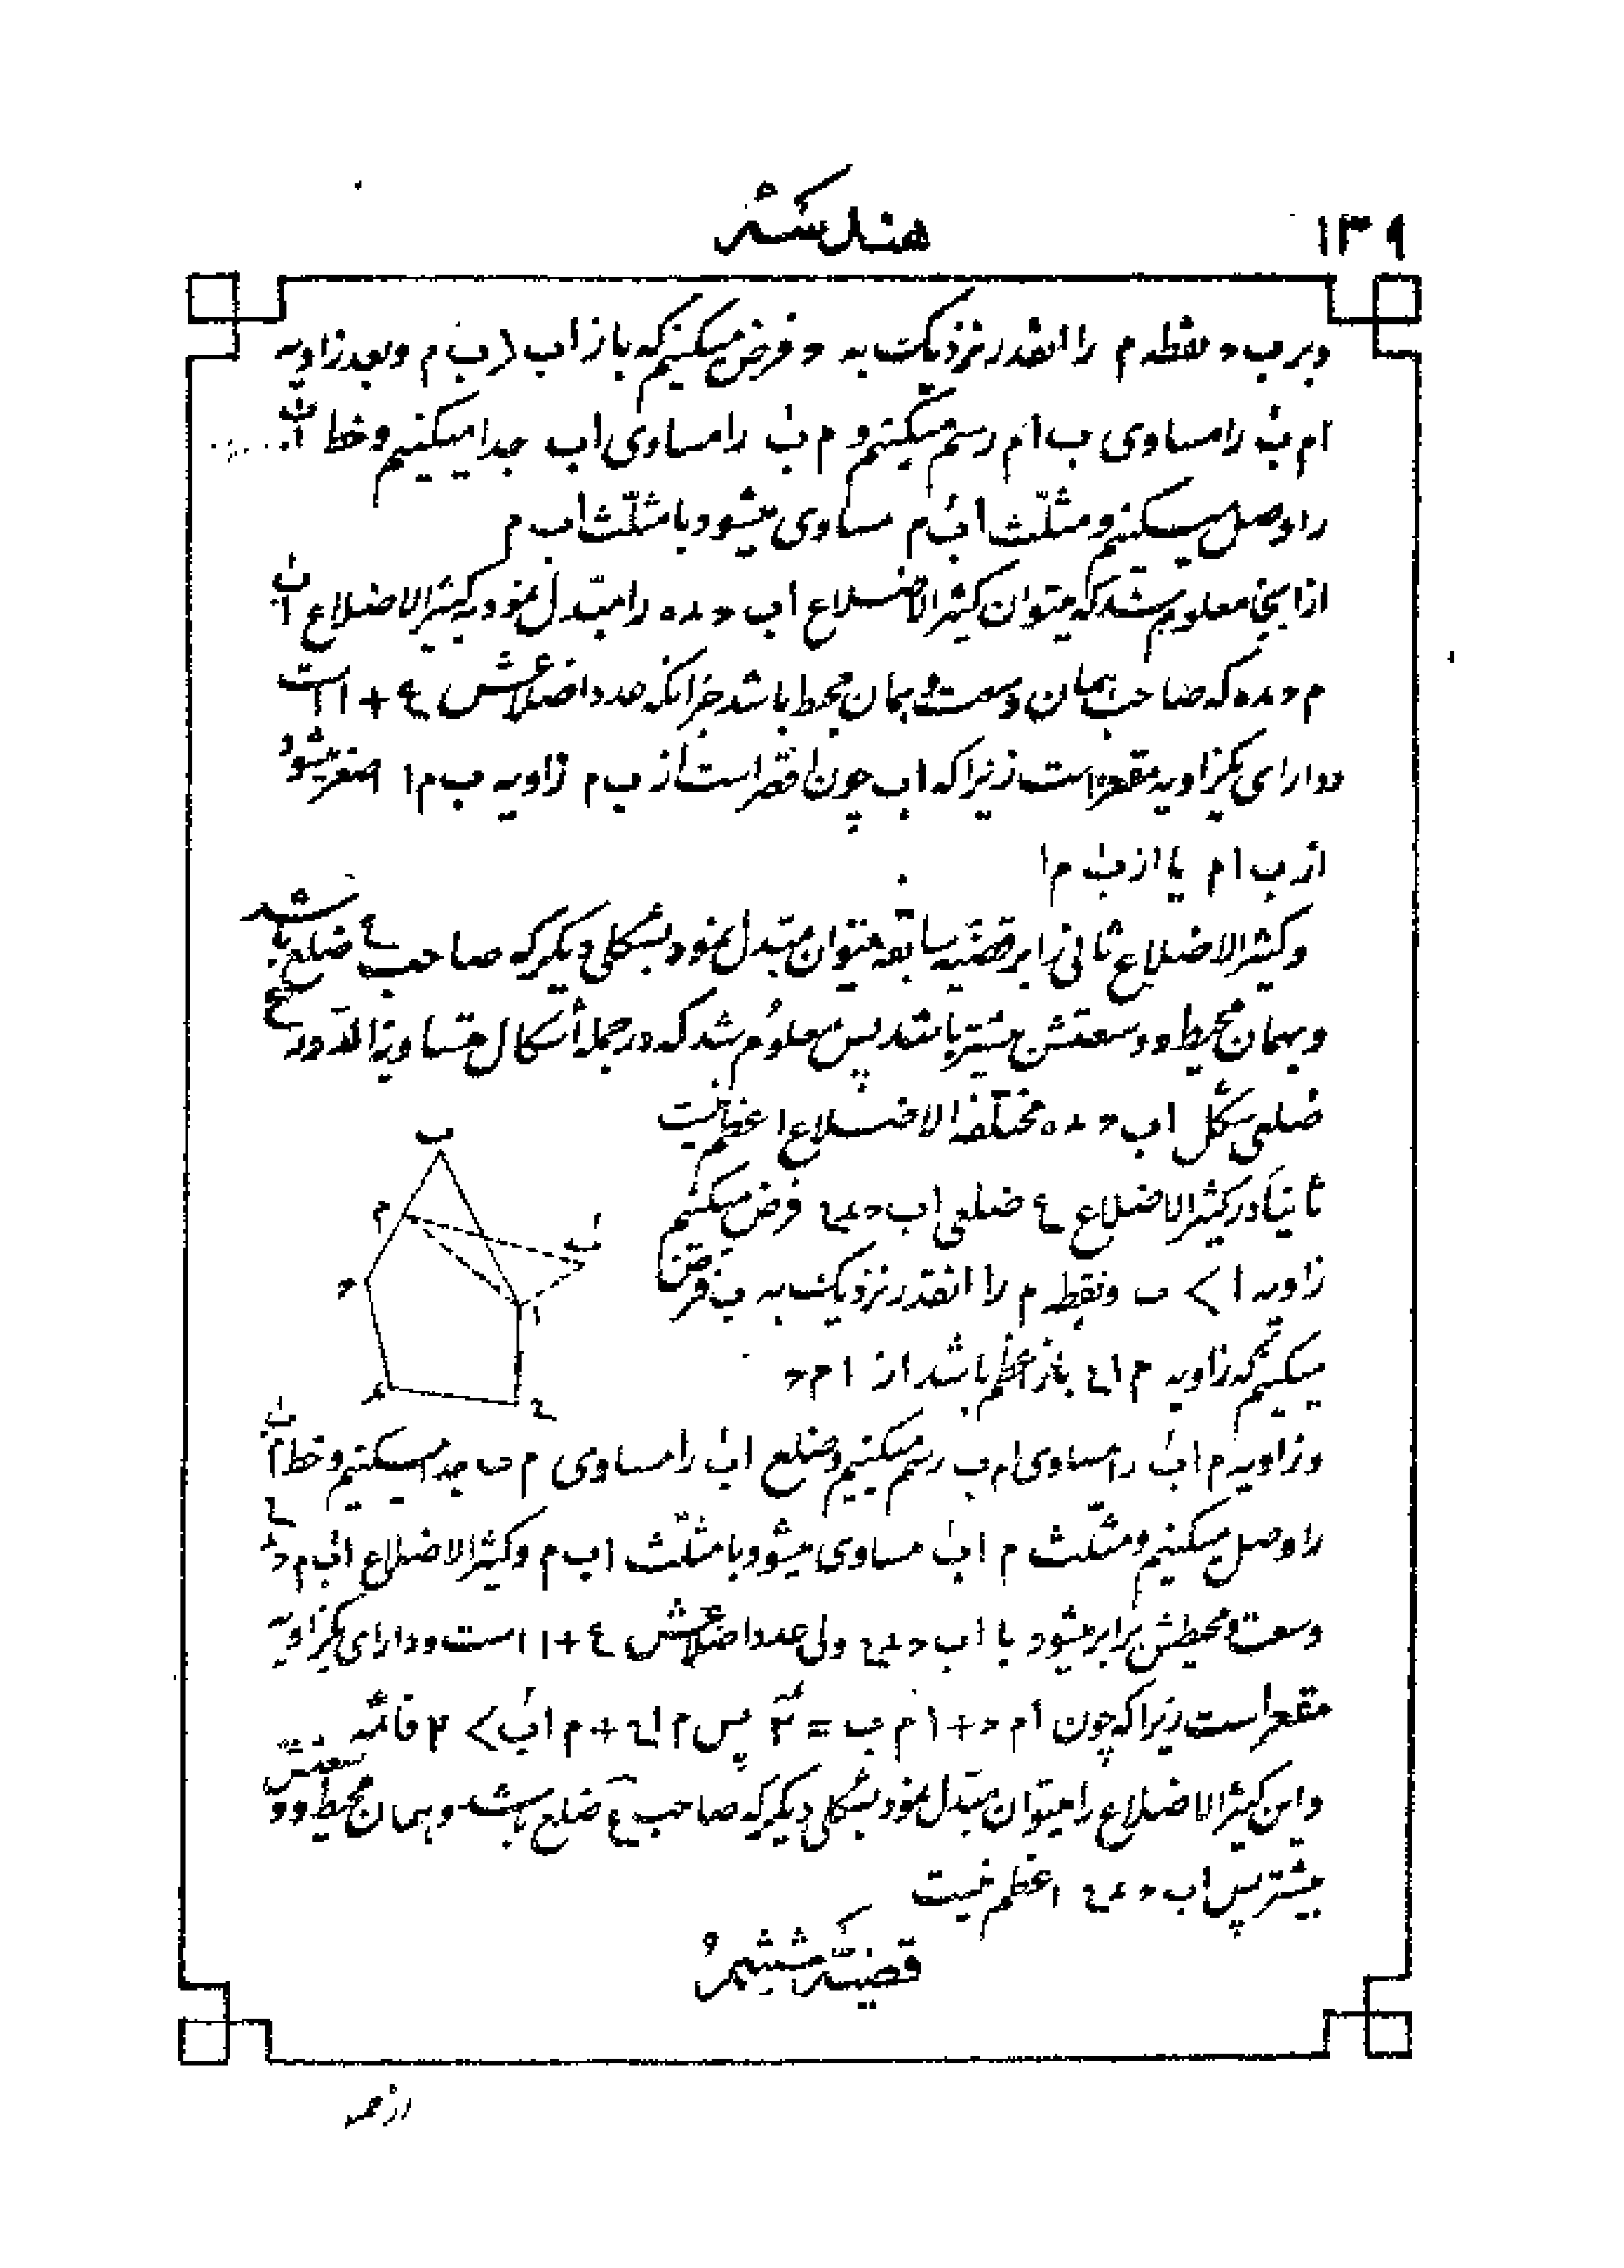 ۱۳۹
هندسه
و بر ب ح نقطه م را انقدر نزدیکت به ح فرض میکنیم که باز اب ⟨ ب م و بعد زاویه
ام بَ را مساوی ب ا م رسم میکنیم و م بَ را مساوی اب جدا میکنیم و خط ا بَ
را وصل میکنیم و مثلّث ا بَ م مساوی میشود با مثلّث اب م
از اینجا معلوم شد که میتوان کثیر الاضلاع اب ح د ه را مبّدل نمود به کثیر الاضلاع ا بَ
م ح د ه که صاحب همان وسعت و همان محیط باشد جز انکه عدد اضلاعش ع + ۱ است
و دارای یکزاویه مقعر است زیرا که اب چون اقصر است از ب م زاویه ب م ا اصغر میشود
از ب ا م یا از بَ م ا
و کثیر الاضلاع ثانی را بر قضیّه سابقه میتوان مبّدل نمود بشکلی دیگر که صاحب ع ضلع باشد
و بهمان محیط و وسعتش بیشتر باشد پس معلوم شد که در جمله اشکال متساویة الدوره ع
ضلعی شکل اب ح د ه مختلفة الاضلاع اعظم نیست
ثانیاً در کثیر الاضلاع ع ضلعی اب ح د ع فرض میکنیم
زاویه ا > ب و نقطه م را انقدر نزدیکت به ب فرض
میکنیم که زاویه م ا ع باز اعظم باشد از ا م ح
و زاویه م ا بَ را مساوی ام ب رسم میکنیم و ضلع ا بَ را مساوی م ب جدا میکنیم و خط م بَ
را وصل میکنیم و مثلّث م ا بَ مساوی میشود با مثلّث اب م و کثیر الاضلاع ا بَ م ح د ع
وسعت و محیطش برابر میشود با اب ح د ع ولی عدد اضلاعش ع + ۱ است و دارای یکزاویه
مقعر است زیرا که چون ام ح + ا م ب = ۲ پس م ا ع + م ا بَ > ۲ قائمه
و این کثیر الاضلاع را میتوان مبّدل نمود بشکلی دیگر که صاحب ع ضلع باشد و بهمان محیط و وسعتش
بیشتر پس اب ح د ع اعظم نیست
ب
م
بَ
ح
ا
د
ع
قضیّه ششم